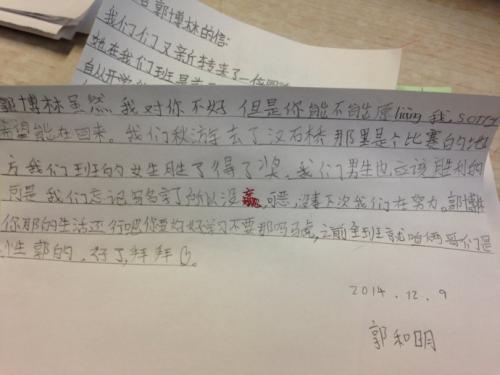 郭博林的信:
我们们又新转来了一位
她在我们班是
自从开学
郭博林虽然我对你不好但是你能不能原liàng我,sorry
希望能在回来。我们秋游去了汉石桥那里是个比赛的地
方我们班的女生胜了得了奖,我们男生也应该胜利的
可是我们忘记写名字了所以没赢,可恶,没事下次我们在努力。郭博林
你那的生活还行吧你要好好学习不要那吗马虎,之前全班就咱俩哥们是
姓郭的,好了,拜拜。
2014.12.9
郭和明